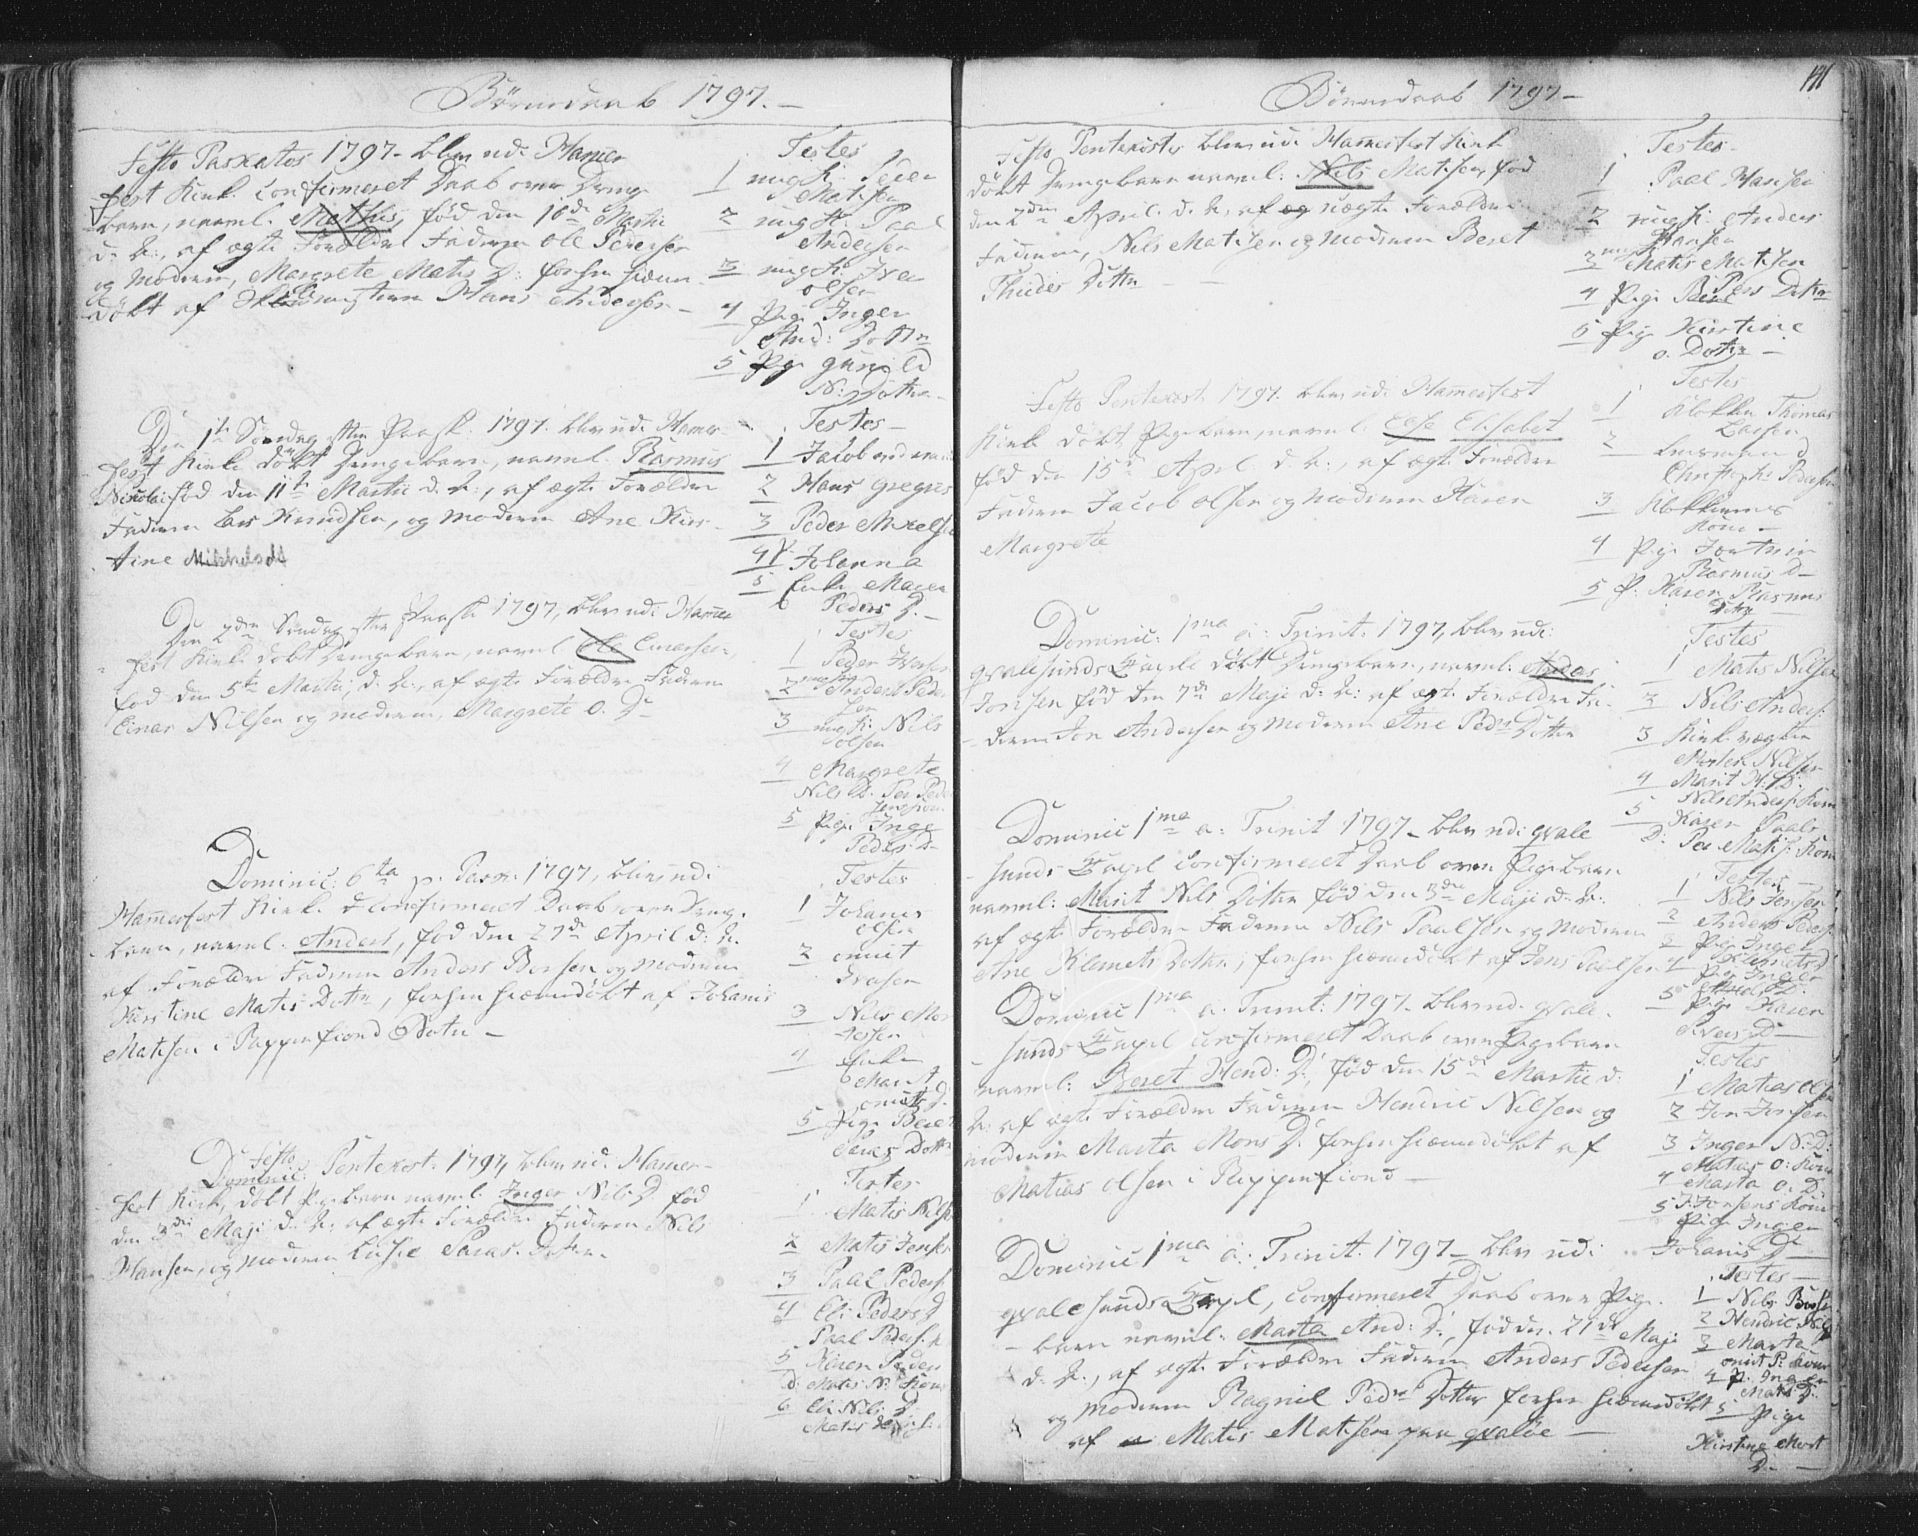 Børnedaab 1797.
Festo Paskatos 1797. blev udi Hamer
fest Kirke Confirmeret Daab over Drenge
barn, navnl. Mathis, fød den 16de Martii
d. A:, af ægte Forældre Faderen Ole Pedersen
og Moderen, Margrete Matis D: forhen hiemme
døbt af Hans Andersen
Testes
1 Peder
Matisen
2 Paal
Andersen
3 Iver
olsen
4 Pige Inger
And: Dotter
5 Pige gunild
N: Dotter
Den 1te Søndag efter Paask. 1797. blev udi Hamer
fest Kirke døbt Drengebarn, navnl. Rasmus
Nicolai fød den 11te Martii d. A:, af ægte Forældre
Faderen Lars Knudsen, og Moderen Ane Kirs
tine Mikkelsdt
Testes
1 Jacob
2 Hans gregers
3 Peder
4 P. Johanna
5 Enke Maren
6 Peders D.
Den 2den Søndag efter Paask 1797, blev udi Hamer
fest Kirke døbt Drengebarn, navnl Ole Einersen,
fød den 5te Martii, d. A:, af ægte Forældre Faderen
Einar Nilsen og moderen, Margrete O. D
Testes
1 Peder
2 Anders Peder
sen
3 Nils
olsen
4 Margrete
Nils D. Peder
5 Pige Inge
Peders D
Dominic: 6ta p. Pasc. 1797, blev udi
Hamerfest Kirke Confirmeret Daab over Dreng.
barn, navnl. Anders, fød den 27de April d: A.
af Forældre Faderen Anders Bersen og Moderen
Kirstine Matis Dotter, forhen hiemmedøbt af Johanis
Matisen i Pappenfiord Botn
Testes
1 Johanis
olsen
2 omut
Ivarsen
3 Nils Mor
tesen
4 Enke
Marit
omuts D.
5 Pige Beret
Dotter
Festo
Dominic: Pentekost. 1797, blev udi Hamer
fest Kirke, døbt Pigebarn navnl. Inger Nils D. fød
den 3die Maji d. A: af ægte Forældre Faderen Nils
Hansen, og Moderen Lusie Dotter.
Testes
1 Matis Nils
2 Matis Jensen
3 Paal Peders
4 Eli Peders D
Paal Peders:
5 Karen Peders
D. Matis N: Kone
6 Eli Nils D
Matis
Børnedaab 1797
141
Festo Pentecoste blev udi Hamerfest Kirk
døbt Drengebarn navnl: Nils Matisen, fød
den 2den April. d. A:, af uægte Forældre
Faderen, Nils Matisen og Moderen Beret
Thudes Dotter
Testes
1 Paal Hansen
2 Anders
Hansen
3 Matis Matisen
4 Pige Pers Dotter
5 Pige Kirstine
O. Dotter
Festo Pentekost. 1797. blev udi Hamerfest
Kirke døbt Pigebarn, navnl. Else Elisabet
fød den 15de April d. A:, af ægte Forældre
Faderen Jacob olsen og Moderen Karen
Margrete
Testes
1 Klokker Thomas
Larsen
2
Christoph: Pedersen
3 Klokkerens
Kone
4 Pige
Rasmus D
5 P. Karen Rasmus
Dotter
Dominic: 1ma a: Trinit: 1797, blev udi
qvalesunds Capele døbt Drengebarn, navnl: Andas
Jonsen fød den 7de Maji d. A: af ægte Forældre Fa-
deren Jon Andersen og Moderen Ane Peds Dotter
Testes
1 Matis Nilsen
2 Nils Anders:
3 Kirkevægter
Morten Nilsen
4 Marit N. D:
Nils Anders: Kone
5 Karen Paals
D: Per Matis: Kone
Dominic 1ma a: Trinit 1797. blev udi qvale
sunds Capel Confirmeret Daab over Pigebarn
navnl: Marit Nils Dotter fød den 3die Maji d. A:
af ægte Forældre Faderen Nils Paulsen og Moderen
Ane Klemets Dotter, forhen hiemmedøbt af Jens Paulsen
Testes
1 Nils Jensen
2 Anders Peders
3 Pige Inger
Klemets D
4 Pige Inger
Nils D:
5 Pige Karen
Ivers D
Dominic 1ma a. Trinit: 1797. blev udi qvale
sunds Capel Confirmeret Daab over Pigebarn
navnl: Beret Hend: D:, fød den 15de Martii d.
A: af ægte Forældre Faderen Hendric Nilsen og
moderen Marta Mons D: forhen hiemmedøbt af
Matias olsen i Reppenfiord
Testes
1 Matias olsen
2 Jon Jonsen
3 Inger N: D:
Matias O: Kone
4 Marta O: D.
J: Jonsens Kone
5 Pige Inger
Johanis D
Dominic 1ma a: Trinit. 1797 blev udi
qvalesunds Capel, Confirmeret Daab over Pige
barn navnl: Marta And: D:, fød den 21de Maji
d. A., af ægte Forældre Faderen Anders Pedersen
og Moderen Ragnil Peds Dotter forhen hiemmedøbt
af Matis Matisen paa qvaløe
Testes
1 Nils
2 Hendric Nils
3 Marte
omut P: Kone
4 P. Inger
Mats D:
5 Pige
Kirstine Mort
D.